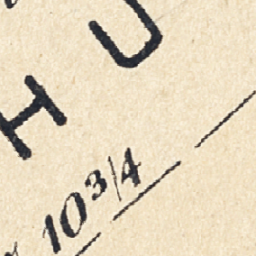 HU
10 3/4